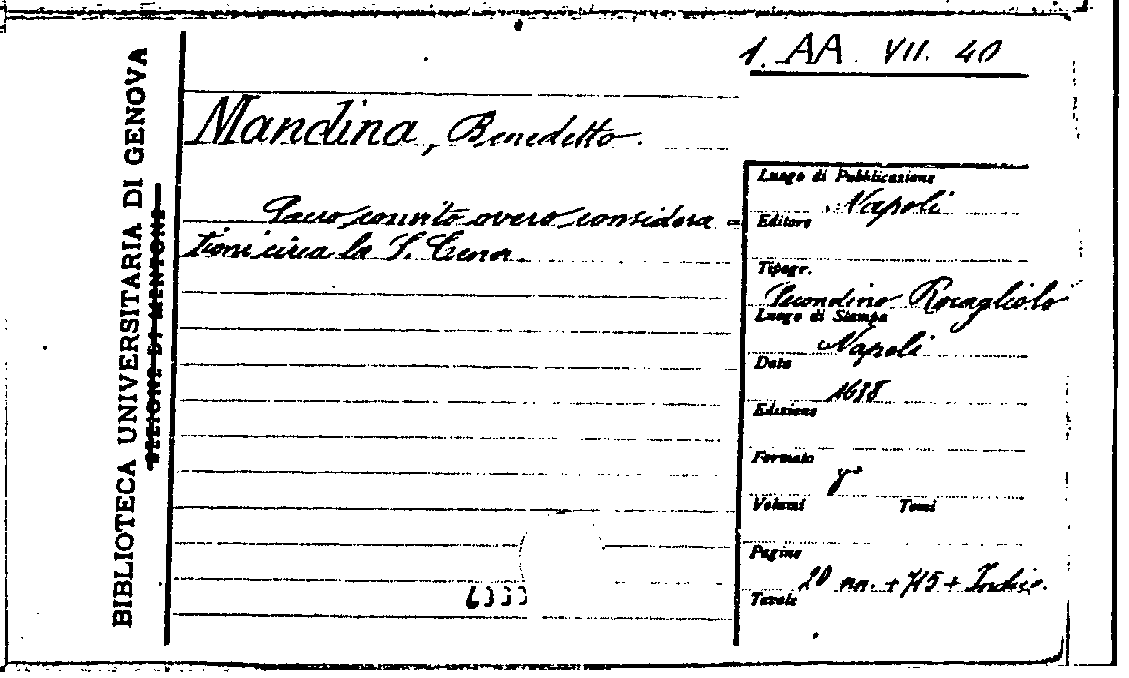 1. AA. VII. 40
BIBLIOTECA UNIVERSITARIA DI GENOVA
Mandina, Benedetto.
Sacro convito overo considera =
tioni circa la S. Cena.
Luogo di Pubblicazione
Napoli
Editore
Tipogr.
Secondino Roncagliolo
Luogo di Stampa
Napoli
Data
1638
Edizione
Formato
8°
Volumi Tomi
Pagine
20 nn. + 715 + Indice.
Tavole